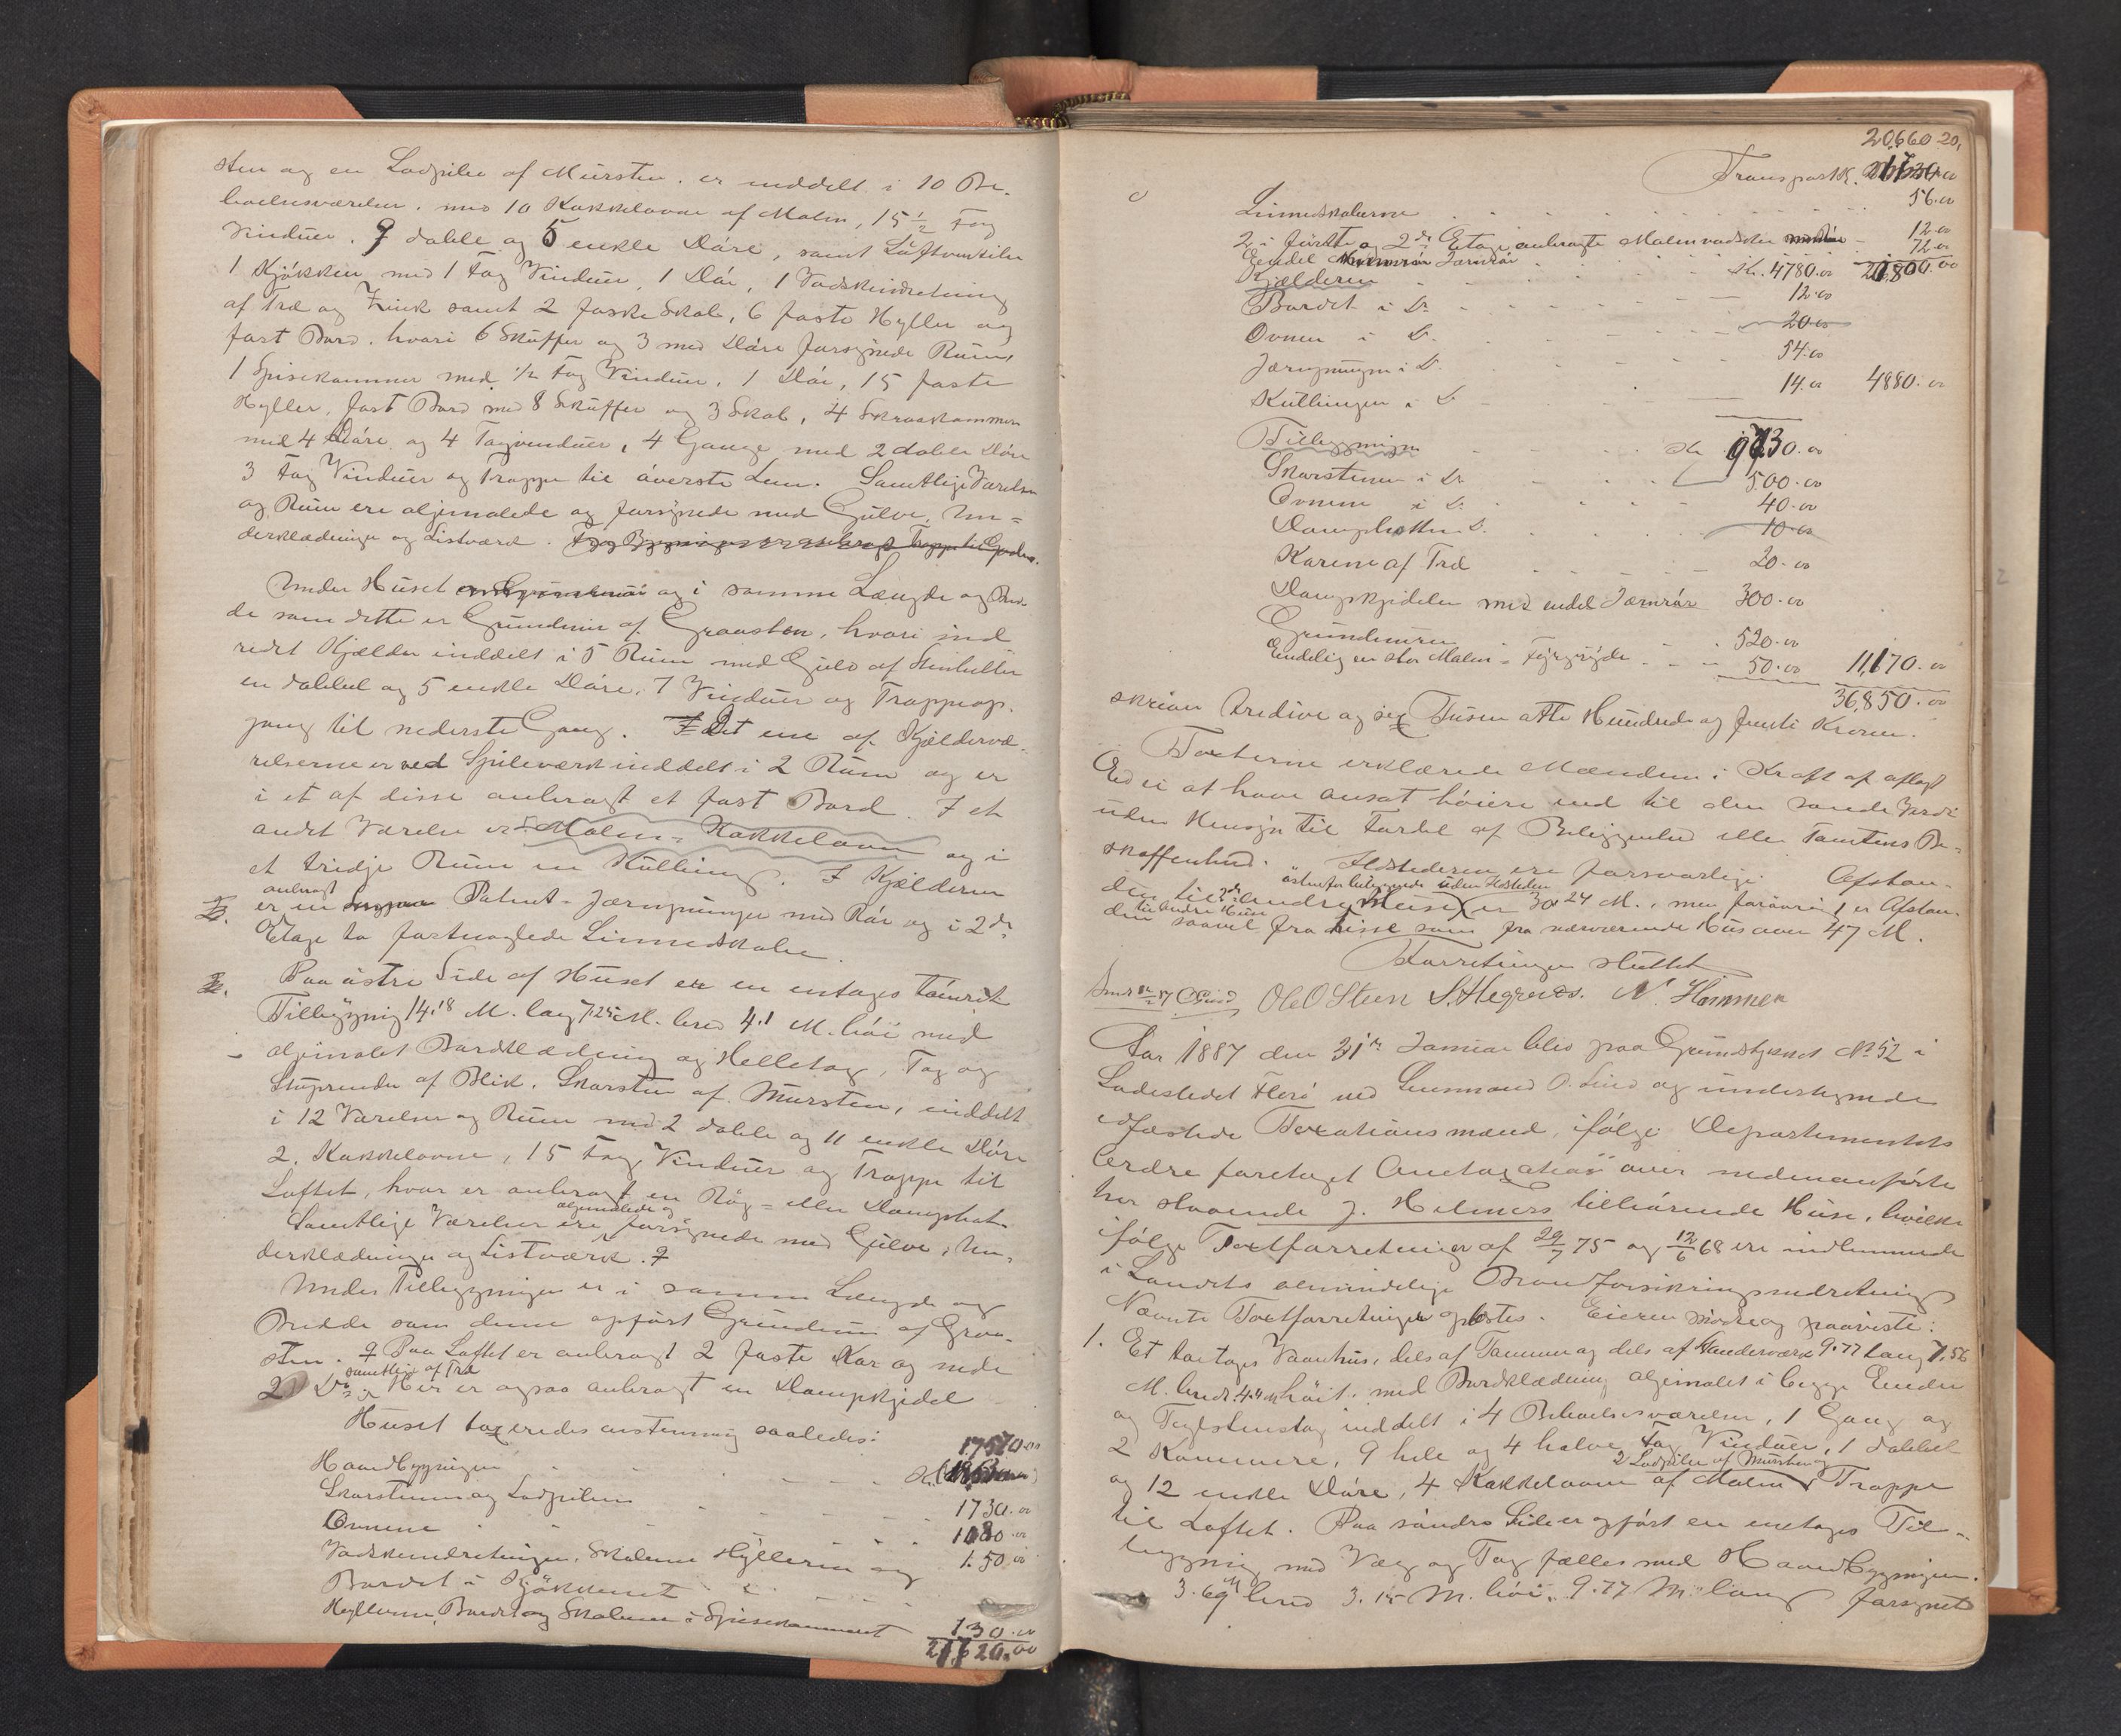 sten og en Lodpibe af Mursten. er inddelt i 10 Be-
boelsesværelser. med 10 Kakkelovne af Malm, 15 1/2 Fag
Vinduer. 9 doble og 5 enkle Döre, samt Luftventiler
1 Kjökken med 1 Fag Vinduer, 1 Dör, 1 Vadskeindretning
af Træ og Zink samt 2 faste Skab, 6 faste Hyller og
fast Bord. hvori 6 Skuffer og 3 med Döre forsynede Rum,
1 Spisekammer med 1/2 Fag Vinduer, 1 Dör, 15 faste
Hyller, fast Bord med 8 Skuffer og 3 Skab, 4 Skraakammer
med 4 Döre og 4 Tagvinduer, 4 Gange med 2 doble Döre
3 Fag Vinduer og Trappe til överste Lem. Samtlige Værelser
og Rum ere oljemalede og forsynede med Gulve, Un=
derklædninger og Listværk.
Under Huset og i samme Længde og Bred
de som dette er Grundmur af Graasten, hvori ind
redet Kjælder inddelt i 5 Rum med Gulv af Stenheller
en dobbel og 5 enkle Döre, 7 Vinduer og Trappeop-
gang til nederste Gang. I det ene af Kjældervæ-
relserne er ved Spileværk inddelt i 2 Rum og er
i et af disse anbragt et fast Bord. I et
andet Værelse er Malm=Kakkelovn og i
et tridje Rum en Kulbing. I Kjælderen
anbragt
er en Patent-Jærnpumpe med Rör og i 2den
Etage to fastnaglede Linnedskabe.
Paa östre Side af Huset er en entages tömret
Tilbygning 14.18 M. lang 7.25 M. bred 4.1 M. höi med
oljemalet Bordklædning og Helletag, Tag og
Stuprender af Blik. Skorsten af Mursten, inddelt
i 12 Værelser og Rum med 2 doble og 11 enkle Döre
2. Kakkelovne, 15 Fag Vinduer og Trappe til
Loftet, hvor er anbragt en Rög= eller Damphat.
oljemalede og
Samtlige Værelser ere forsynede med Gulve, Un-
derklædninger og Listværk.
Under Tilbygningen er i samme Længde og
Bredde som denne opfört Grundmur af Graa-
sten. Paa Loftet er anbragt 2 faste Kar og nede
samtlige af Træ
2 Do. Her er ogsaa anbragt en Dampkjedel
Huset taxeredes enstemmig saaledes:
Hovedbygningen 17570.00
Skorstenen og Lodpiben 1730.00
Ovnene 1080.00
Vadskeindretningen, Skabene Hyllerne og 150.00
Bordet i Kjökkenet
Hyllerne, Bordet og Skabene i Spisekammeret 130.00
20660.20
Transport K.
Linnedskabene 56.00
2 i förste og 2den Etage anbragte Malmvadske 12.00
Endel Jærnrör 72.00
Kjælderen Kr. 4780.00 20,800.00
Bordet i Do. 12.00
Ovnen i Do. 20.00
Jærnpumpen i Do. 54.00
Kulbingen i Do. 14.00 4880.00
Tilbygningen Kr. 9730.00
Skorstenen i Do. 500.00
Ovnene i Do. 40.00
Damphatten Do. 10.00
Karene af Træ 20.00
Dampkjedelen med endel Jærnrör 300.00
Grundmuren 520.00
Endelig en stor Malm= 50.00 11,170.00
36,850.00
skriver tredive og sex Tusen otte Hundrede og femti Kroner.
Taxterne erklærede Mændene i Kraft af aflagt
Ed ei at have ansat höiere end til den sande Værdi
uden Hensyn til Fordel af Beliggenhed eller Tomtens Be-
skaffenhed. Ildstederne ere forsvarlige. Afstan-
östenfor beliggende uden Ildsteder
den til andre Huse er 24 M., men forövrigt er Afstan-
til andre Huse
den saavel fra disse som fra nærværende Hus over 47 M.
Forretningen sluttet
Ole O Steen S. Hegrenes. N. Hammer
Aar 1887 den 31te Januar blev paa Grundstykket No 52 i
Ladestedet Florö ved Lensmand O. Lind og undertegnede
edfæstede Taxationsmænd, ifölge Departementets
Ordre foretaget Omtaxation over nedenanförte
her staaende J. Helmers tilhörende Huse, hvilke
ifölge Taxtforretninger af 29/7 75 og 12/6 68 ere indlemmede
i Landets almindelige Brandforsikringsindretning
Nævnte Taxtforretninger oplæstes. Eieren mödte og paaviste:
1. Et toetages Vaanhus, dels af Tømmer og dels af Standerværk 9.77 lang 7.56
M. bredt. 4.4 M höit. med Bordklædning oljemalet i begge Ender
og Teglstenstag inddelt i 4 Beboelsesværelser, 1 Gang og
2 Kammere, 9 hele og 4 halve Fag Vinduer, 1 dobbel
2 Lodpiber af Mursten og
og 12 enkle Döre, 4 Kakkelovne af Malm, Trappe
til Loftet. Paa söndre Side er opfört en entages Til-
bygning med Væg og Tag fælles med Hovedbygningen.
3.69 M bred 3.15 M. höi. 9.77 M. lang forsynet